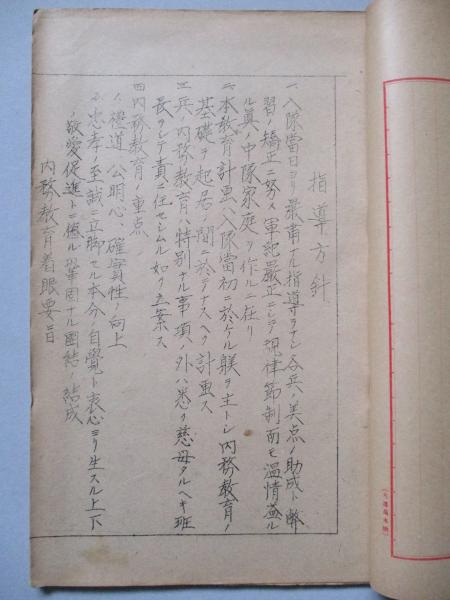 指導方針
一、入隊當日ヨリ最肅ナル指導ヲナシ各兵ノ美点ノ助成ト弊
習ノ矯正ニ努メ軍紀嚴正ニシテ規律節制而モ温情溢ル
ル真ノ中隊家庭ヲ作ルニ在リ
二、本教育計画ハ入隊當初ニ於ケル躾ヲ主トシ内務教育ノ
基礎ヲ起居ノ間ニ於テナスヘク計画ス
三、兵ノ内務教育ハ特別ナル事項ノ外ハ悉ク慈母タルヘキ班
長ヲシテ責ニ任セシムル如ク立案ス
四、内務教育ノ重点
1、禮道、公明心、確實性ノ向上
2、忠孝ノ至誠ニ立脚セル本分ノ自覺ト衷心ヨリ生スル上下
ノ敬愛促進トニ依ル鞏固ナル團結ノ結成
内務教育着眼要目